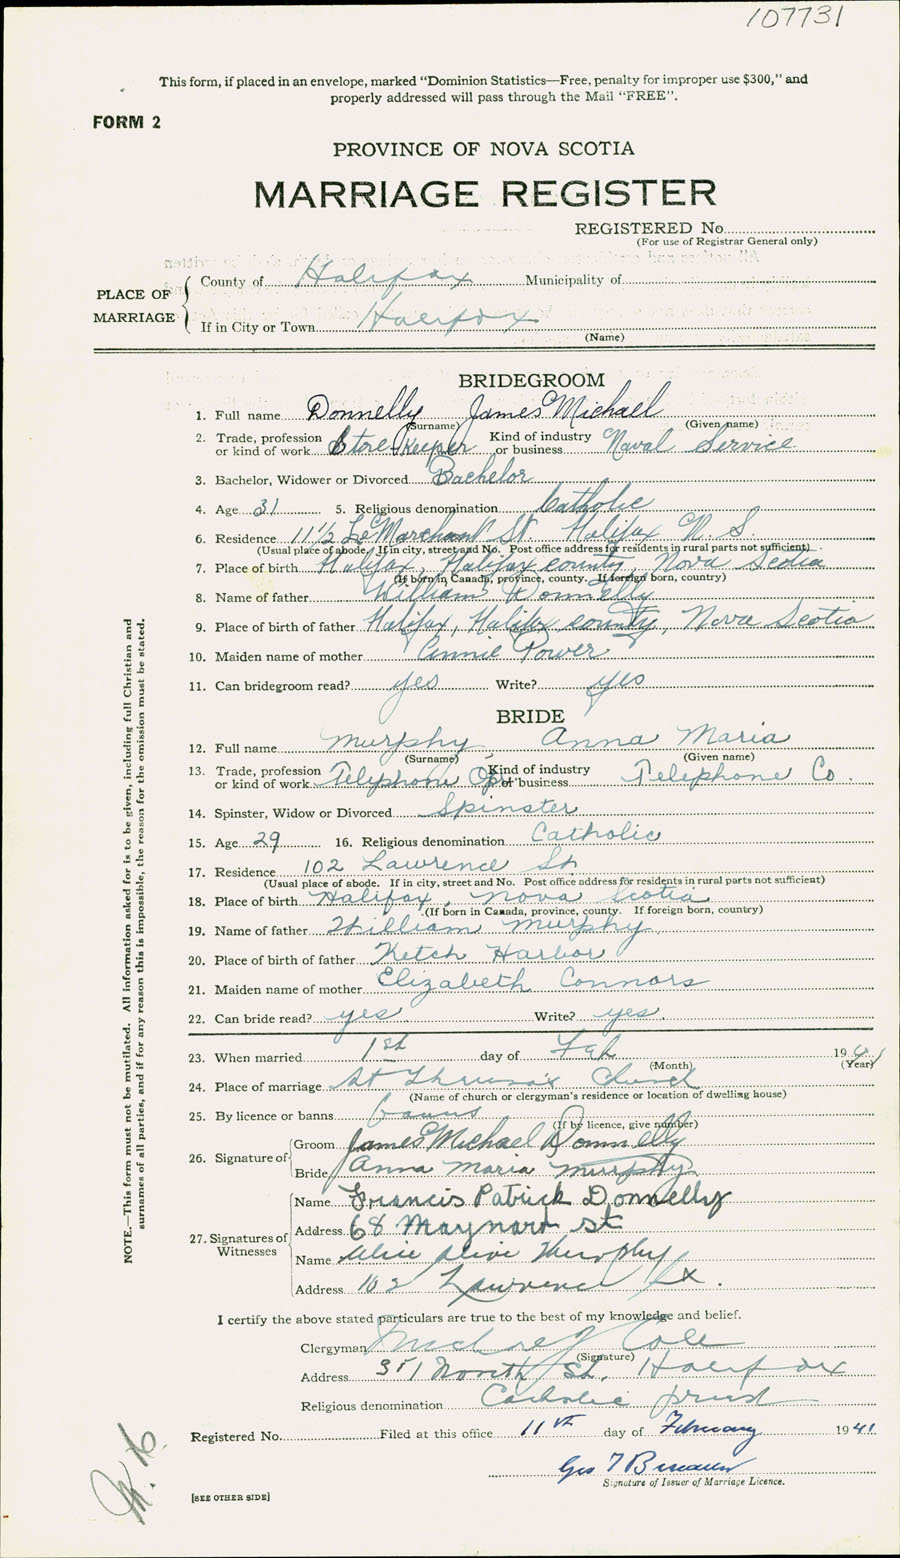 107731
This form, if placed in an envelope, marked "Dominion Statistics—Free, penalty for improper use $300," and
properly addressed will pass through the Mail "FREE".
FORM 2
PROVINCE OF NOVA SCOTIA
MARRIAGE REGISTER
REGISTERED No.
(For use of Registrar General only)
PLACE OF MARRIAGE
County of Halifax Municipality of
If in City or Town Halifax
(Name)
BRIDEGROOM
1. Full name Donnelly James Michael
(Surname) (Given name)
2. Trade, profession or kind of work Store-Keeper Kind of industry or business Naval Service
3. Bachelor, Widower or Divorced Bachelor
4. Age 31 5. Religious denomination Catholic
6. Residence 11½ LeMarchant St Halifax N. S.
(Usual place of abode. If in city, street and No. Post office address for residents in rural parts not sufficient)
7. Place of birth Halifax, Halifax county, Nova Scotia
(If born in Canada, province, county. If foreign born, country)
8. Name of father William Donnelly
9. Place of birth of father Halifax, Halifax county, Nova Scotia
10. Maiden name of mother Annie Power
11. Can bridegroom read? yes Write? yes
BRIDE
12. Full name Murphy Anna Maria
(Surname) (Given name)
13. Trade, profession or kind of work Telephone Opr. Kind of industry or business Telephone Co.
14. Spinster, Widow or Divorced Spinster
15. Age 29 16. Religious denomination Catholic
17. Residence 102 Lawrence St.
(Usual place of abode. If in city, street and No. Post office address for residents in rural parts not sufficient)
18. Place of birth Halifax, Nova Scotia
(If born in Canada, province, county. If foreign born, country)
19. Name of father William Murphy
20. Place of birth of father Ketch Harbor
21. Maiden name of mother Elizabeth Connors
22. Can bride read? yes Write? yes.
23. When married 1st day of Feb 19
(Month) (Year)
24. Place of marriage St Church
(Name of church or clergyman's residence or location of dwelling house)
25. By licence or banns banns
(If by licence, give number)
26. Signature of Groom James Michael Donnelly
Bride Anna Maria Murphy
27. Signatures of Witnesses
Name Francis Patrick Donnelly
Address 68 Maynard st
Name Alice Murphy
Address 102 Lawrence
I certify the above stated particulars are true to the best of my knowledge and belief.
Clergyman Cole
(Signature)
Address 351 North St. Halifax
Religious denomination Catholic priest
Registered No. Filed at this office 11th day of February 1941
Geo
Signature of Issuer of Marriage Licence.
[SEE OTHER SIDE]
NOTE.—This form must not be mutilated. All information asked for is to be given, including full Christian and
surnames of all parties, and if for any reason this is impossible, the reason for the omission must be stated.